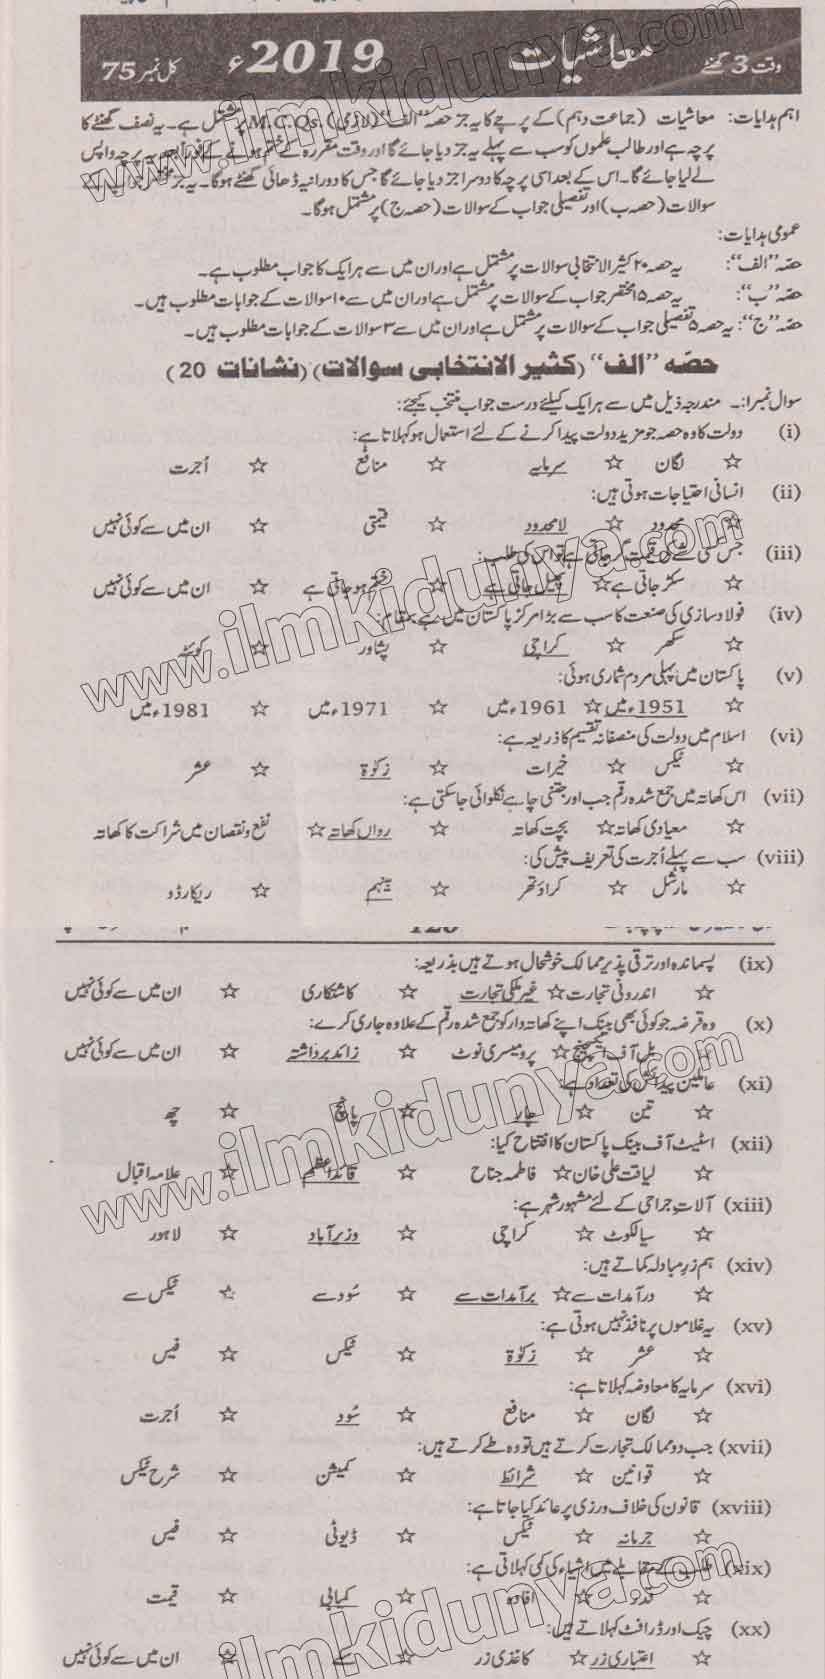 وقت 3 گھنٹے معاشیات 2019ء کل نمبر 75
اہم ہدایات: معاشیات (جماعت دہم) کے پرچے کا یہ جز حصہ "الف" (لازمی) M.C.Qs. پر مشتمل ہے۔ یہ نصف گھنٹے کا
پرچہ ہے اور طالب علموں کو سب سے پہلے یہ جز دیا جائے گا اور وقت مقررہ کے ختم ہونے کے فوراً بعد یہ پرچہ واپس
لے لیا جائے گا۔ اس کے بعد اسی پرچہ کا دوسرا جز دیا جائے گا جس کا دورانیہ ڈھائی گھنٹے ہوگا۔ یہ جز مختصر جواب کے
سوالات (حصہ ب) اور تفصیلی جواب کے سوالات (حصہ ج) پر مشتمل ہوگا۔
عمومی ہدایات:
حصّہ "الف": یہ حصہ ۲۰ کثیر الانتخابی سوالات پر مشتمل ہے اور ان میں سے ہر ایک کا جواب مطلوب ہے۔
حصّہ "ب": یہ حصہ ۱۵ مختصر جواب کے سوالات پر مشتمل ہے اور ان میں سے ۱۰ سوالات کے جوابات مطلوب ہیں۔
حصّہ "ج": یہ حصہ ۵ تفصیلی جواب کے سوالات پر مشتمل ہے اور ان میں سے ۳ سوالات کے جوابات مطلوب ہیں۔
حصّہ "الف" (کثیر الانتخابی سوالات) (نشانات 20)
سوال نمبر ۱:۔ مندرجہ ذیل میں سے ہر ایک کیلئے درست جواب منتخب کیجئے:
(i) دولت کا وہ حصہ جو مزید دولت پیدا کرنے کے لئے استعمال ہو کہلاتا ہے:
☆ لگان ☆ سرمایہ ☆ منافع ☆ اُجرت
(ii) انسانی احتیاجات ہوتی ہیں:
☆ محدود ☆ لامحدود ☆ قیمتی ☆ ان میں سے کوئی نہیں
(iii) جس کسی شے کی قیمت گر جاتی ہے تو اس کی طلب:
☆ سکڑ جاتی ہے ☆ پھیل جاتی ہے ☆ ختم ہو جاتی ہے ☆ ان میں سے کوئی نہیں
(iv) فولاد سازی کی صنعت کا سب سے بڑا مرکز پاکستان میں ہے بمقام:
☆ سکھر ☆ کراچی ☆ پشاور ☆ کوئٹہ
(v) پاکستان میں پہلی مردم شماری ہوئی:
☆ 1951ء میں ☆ 1961ء میں ☆ 1971ء میں ☆ 1981ء میں
(vi) اسلام میں دولت کی منصفانہ تقسیم کا ذریعہ ہے:
☆ ٹیکس ☆ خیرات ☆ زکوٰۃ ☆ عشر
(vii) اس کھاتہ میں جمع شدہ رقم جب اور جتنی چاہے نکلوائی جا سکتی ہے:
☆ معیادی کھاتہ ☆ بچت کھاتہ ☆ رواں کھاتہ ☆ نفع و نقصان میں شراکت کا کھاتہ
(viii) سب سے پہلے اُجرت کی تعریف پیش کی:
☆ مارشل ☆ کراؤتھر ☆ بینہم ☆ ریکارڈو
(ix) پسماندہ اور ترقی پذیر ممالک خوشحال ہوتے ہیں بذریعہ:
☆ اندرونی تجارت ☆ غیر ملکی تجارت ☆ کاشتکاری ☆ ان میں سے کوئی نہیں
(x) وہ قرضہ جو کوئی بھی بینک اپنے کھاتہ دار کو جمع شدہ رقم کے علاوہ جاری کرے:
☆ بل آف ایکسچینج ☆ پرومیسری نوٹ ☆ زائد برداشتہ ☆ ان میں سے کوئی نہیں
(xi) عاملین پیدائش کی تعداد ہے:
☆ تین ☆ چار ☆ پانچ ☆ چھ
(xii) اسٹیٹ آف بینک پاکستان کا افتتاح کیا:
☆ لیاقت علی خان ☆ فاطمہ جناح ☆ قائداعظم ☆ علامہ اقبال
(xiii) آلاتِ جراحی کے لئے مشہور شہر ہے:
☆ سیالکوٹ ☆ کراچی ☆ وزیرآباد ☆ لاہور
(xiv) ہم زرِ مبادلہ کماتے ہیں:
☆ درآمدات سے ☆ برآمدات سے ☆ سُود سے ☆ ٹیکس سے
(xv) یہ غلاموں پر نافذ نہیں ہوتی ہے:
☆ عشر ☆ زکوٰۃ ☆ ٹیکس ☆ فیس
(xvi) سرمایہ کا معاوضہ کہلاتا ہے:
☆ لگان ☆ منافع ☆ سُود ☆ اُجرت
(xvii) جب دو ممالک تجارت کرتے ہیں تو وہ طے کرتے ہیں:
☆ قوانین ☆ شرائط ☆ کمیشن ☆ شرح ٹیکس
(xviii) قانون کی خلاف ورزی پر عائد کیا جاتا ہے:
☆ جرمانہ ☆ ٹیکس ☆ ڈیوٹی ☆ فیس
(xix) طلب کے مقابلے میں اشیاء کی کمی کہلاتی ہے:
☆ قدر ☆ افادہ ☆ کمیابی ☆ قیمت
(xx) چیک اور ڈرافٹ کہلاتے ہیں:
☆ اعتباری زر ☆ کاغذی زر ☆ سکے ☆ ان میں سے کوئی نہیں
www.ilmkidunya.com
www.ilmkidunya.com
www.ilmkidunya.com
www.ilmkidunya.com